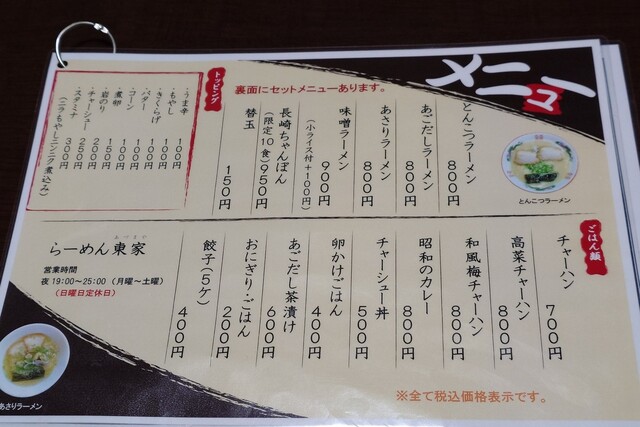 メニュー
裏面にセットメニューあります。
とんこつラーメン 800円
あごだしラーメン 800円
あさりラーメン 800円
味噌ラーメン 900円
(小ライス付+100円)
長崎ちゃんぽん
(限定10食) 950円
替玉 150円
とんこつラーメン
トッピング
・うま辛 100円
・もやし 100円
・きくらげ 100円
・バター 100円
・コーン 100円
・煮卵 100円
・岩のり 150円
・チャーシュー 250円
・スタミナ 300円
(ニラもやしニンニク煮込み)
ごはん類
チャーハン 700円
高菜チャーハン 800円
和風梅チャーハン 800円
昭和のカレー 800円
チャーシュー丼 500円
卵かけごはん 400円
あごだし茶漬け 600円
おにぎり・ごはん 200円
餃子(5ケ) 400円
らーめん 東家
営業時間
夜19:00~25:00 (月曜~土曜)
(日曜日定休日)
あさりラーメン
※全て税込価格表示です。